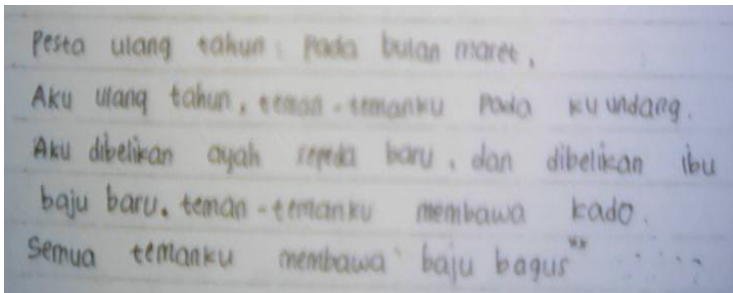 Pesta ulang tahun : Pada bulan maret,
Aku ulang tahun, teman-temanku Pada ku undang.
Aku dibelikan ayah sepeda baru, dan dibelikan ibu
baju baru. teman-temanku membawa kado.
Semua temanku membawa baju bagus"